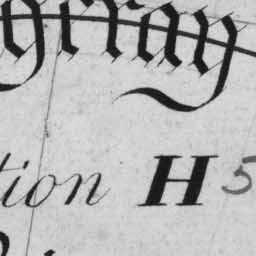 geray
tion H 5